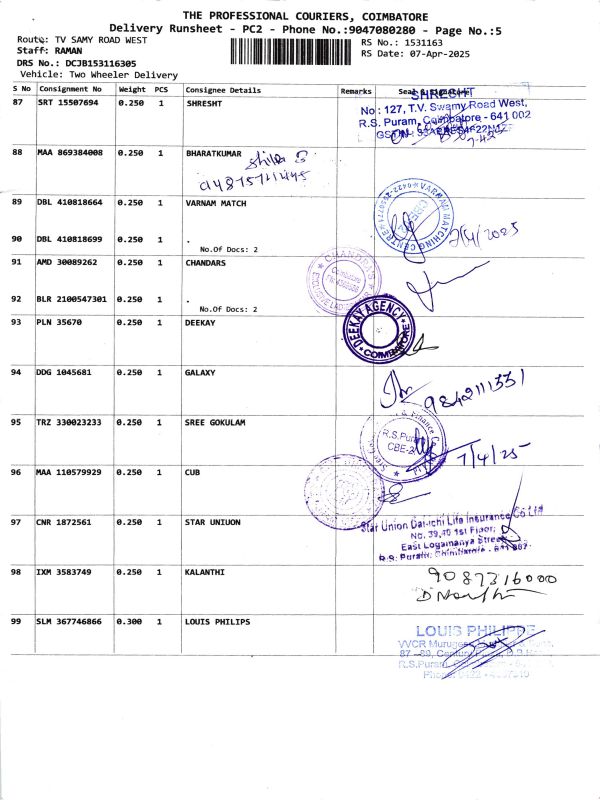 THE PROFESSIONAL COURIERS, COIMBATORE
Delivery Runsheet - PC2 - Phone No.:9047080280 - Page No.:5
Route: TV SAMY ROAD WEST
Staff: RAMAN
DRS No.: DCJB153116305
Vehicle: Two Wheeler Delivery
RS No.: 1531163
RS Date: 07-Apr-2025
S No Consignment No Weight PCS Consignee Details Remarks Seal & Signature
87 SRT 15507694 0.250 1 SHRESHT
SHRECHT
No : 127, T.V. Swamy Road West,
R.S. Puram, Coimbatore - 641 002
88 MAA 869384008 0.250 1 BHARATKUMAR
89 DBL 410818664 0.250 1 VARNAM MATCH
VARNAM MATCHING CENTRE
90 DBL 410818699 0.250 1 .
No.Of Docs: 2
7/4/2025
91 AMD 30089262 0.250 1 CHANDARS
CHANDRA'S
Coimbatore
92 BLR 2100547301 0.250 1 .
No.Of Docs: 2
93 PLN 35670 0.250 1 DEEKAY
DEEKAY AGENCY
COIMBATORE
94 DDG 1045681 0.250 1 GALAXY
9842111331
95 TRZ 330023233 0.250 1 SREE GOKULAM
R.S.Puram
CBE-2
7/4/25
96 MAA 110579929 0.250 1 CUB
97 CNR 1872561 0.250 1 STAR UNIUON
Star Union Dai-ichi Life Insurance Co Ltd
No. 39,40 1st Floor,
East Logamanya Street
R.S. Puram,
98 IXM 3583749 0.250 1 KALANTHI
9087316000
99 SLM 367746866 0.300 1 LOUIS PHILIPS
LOUIS PHILIPPE